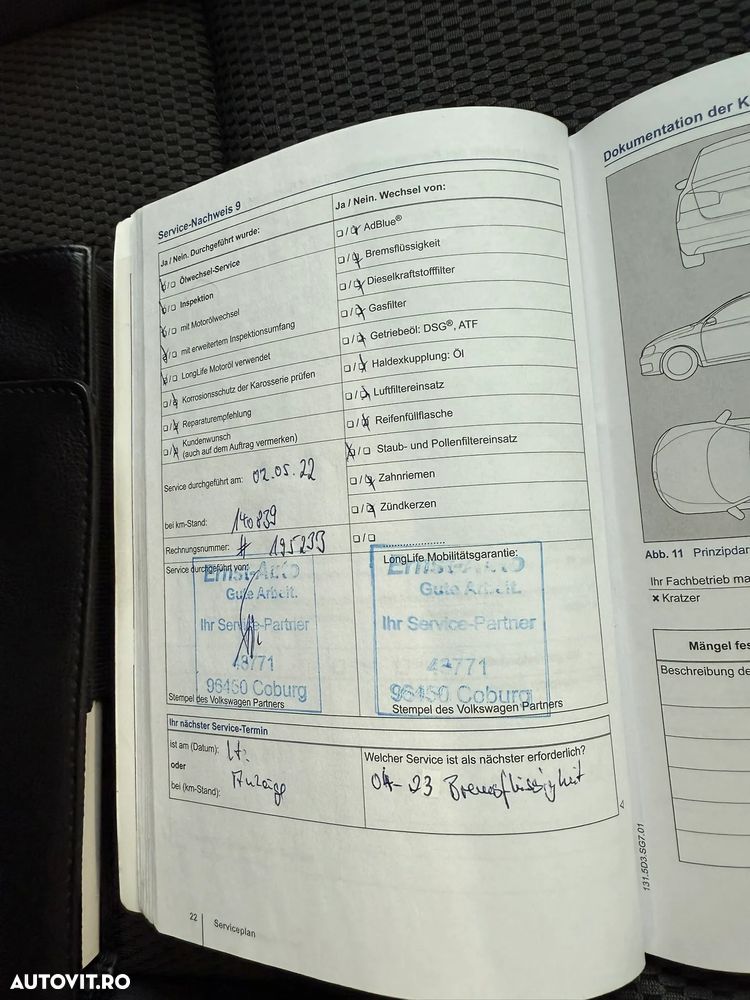 Service-Nachweis 9
Ja / Nein. Durchgeführt wurde:
☒/☐ Ölwechsel-Service
☒/☐ Inspektion
☒/☐ mit Motorölwechsel
☒/☐ mit erweitertem Inspektionsumfang
☒/☐ LongLife Motoröl verwendet
☐/☒ Korrosionsschutz der Karosserie prüfen
☐/☒ Reparaturempfehlung
☐/☒ Kundenwunsch
(auch auf dem Auftrag vermerken)
Service durchgeführt am: 02.05.22
bei km-Stand: 140839
Rechnungsnummer: # 195233
Service durchgeführt von:
Ernst-Auto
Gute Arbeit.
Ihr Service-Partner
48771
96450 Coburg
Stempel des Volkswagen Partners
Ja / Nein. Wechsel von:
☐/☒ AdBlue®
☐/☒ Bremsflüssigkeit
☐/☒ Dieselkraftstofffilter
☐/☒ Gasfilter
☐/☒ Getriebeöl: DSG®, ATF
☐/☒ Haldexkupplung: Öl
☐/☒ Luftfiltereinsatz
☐/☒ Reifenfüllflasche
☒/☐ Staub- und Pollenfiltereinsatz
☐/☒ Zahnriemen
☐/☒ Zündkerzen
☐/☐ ....................
LongLife Mobilitätsgarantie:
Ernst-Auto
Gute Arbeit.
Ihr Service-Partner
48771
96450 Coburg
Stempel des Volkswagen Partners
Ihr nächster Service-Termin
ist am (Datum): lt.
oder Anzeige
bei (km-Stand):
Welcher Service ist als nächster erforderlich?
04-23 Bremsflüssigkeit
22
Serviceplan
Dokumentation der K
Abb. 11 Prinzipdar
Ihr Fachbetrieb ma
× Kratzer
Mängel fes
Beschreibung de
131.5D3.SG7.01
AUTOVIT.RO